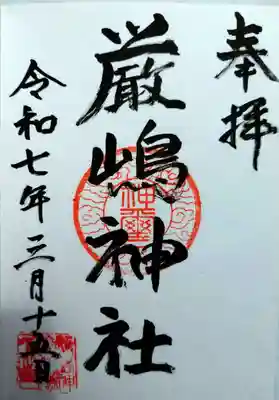 奉拝
厳嶋神社
令和七年三月十五日